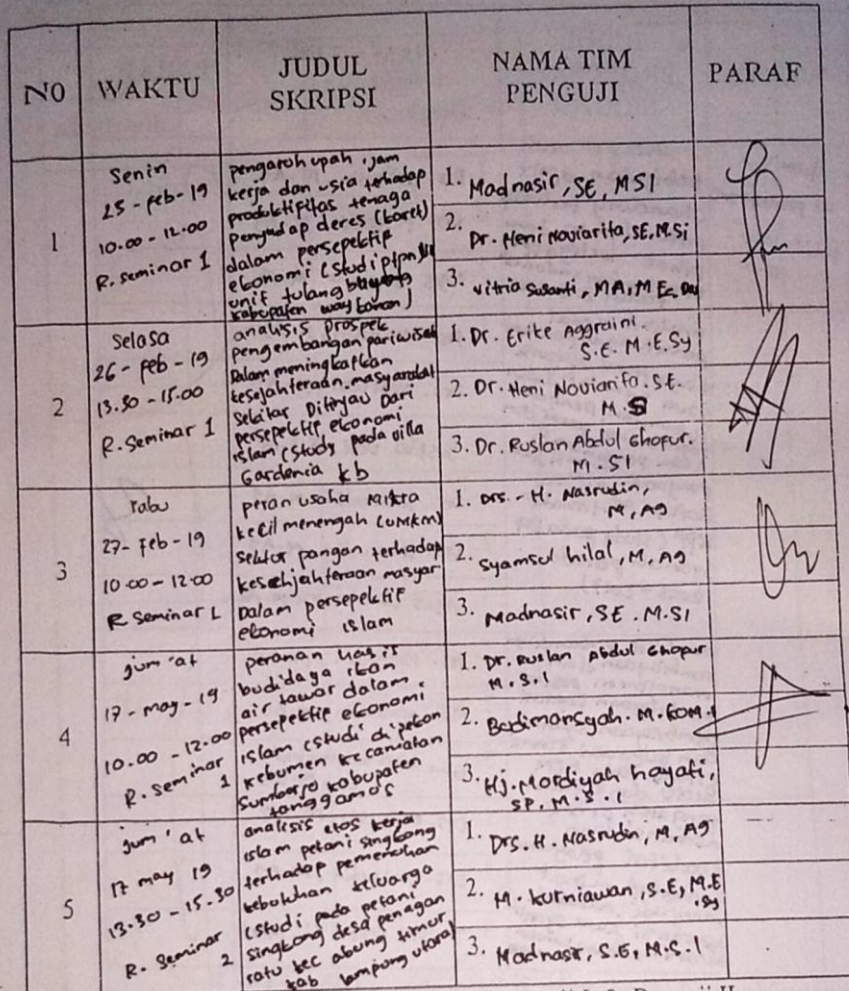 NO
WAKTU
JUDUL
SKRIPSI
NAMA TIM
PENGUJI
PARAF
1
Senin
25 - feb - 19
10.00 - 12.00
R. Seminar 1
pengaruh upah, jam
kerja dan usia terhadap
produktifitas tenaga
penyadap deres (karet)
dalam persepektif
ekonomi (studi ptpn
unit tulang buyang
kabupaten way kanan)
1. Madnasir, SE, MSI
2. Dr. Heni Noviarita, SE. M. Si
3. Vitria Susanti, MA, M Ec. Dev
2
Selasa
26 - feb - 19
13.30 - 15.00
R. Seminar 1
analisis prospek
pengembangan pariwisata
Dalam meningkatkan
kesejahteraan masyarakat
Sekitar Ditinjau Dari
persepektif ekonomi
islam (study pada villa
Gardenia kb
1. Dr. Erike Aggraini.
S.E. M.E.Sy
2. Dr. Heni Noviarita. SE.
M.S
3. Dr. Ruslan Abdul Ghopur.
M.SI
3
rabu
27 - feb - 19
10.00 - 12.00
R Seminar 1
peran usaha Mikra
kecil menengah (UMKM)
sektor pangan terhadap
kesehjahteraan masyar
Dalam persepektif
ekonomi islam
1. Drs. - H. Nasrudin,
M, Ag
2. Syamsul hilal, M, Ag
3. Madnasir, SE. M.SI
4
jum'at
17 - may - 19
10.00 - 12.00
R. Seminar
1
peranan hasil
budidaya ikan
air tawar dalam
persepektif ekonomi
islam (studi di pekon
kebumen kecamatan
Sumberjo kabupaten
tanggamos
1. Dr. Ruslan Abdul Ghopur
M.S.I
2. Badimansyah. M.KOM.I
3. Hj. Mardiyah hayati,
SP, M.S.I
5
jum'at
17 may 19
13.30 - 15.30
R. Seminar
2
analisis etos kerja
islam petani singkong
terhadap pemenuhan
kebutuhan keluarga
(studi pada petani
singkong desa penagan
ratu kec abung timur
kab lampung utara)
1. Drs. H. Nasrudin, M, Ag
2. M. kurniawan, S.E, M.E
.Sy
3. Madnasir, S.E, M.S.I